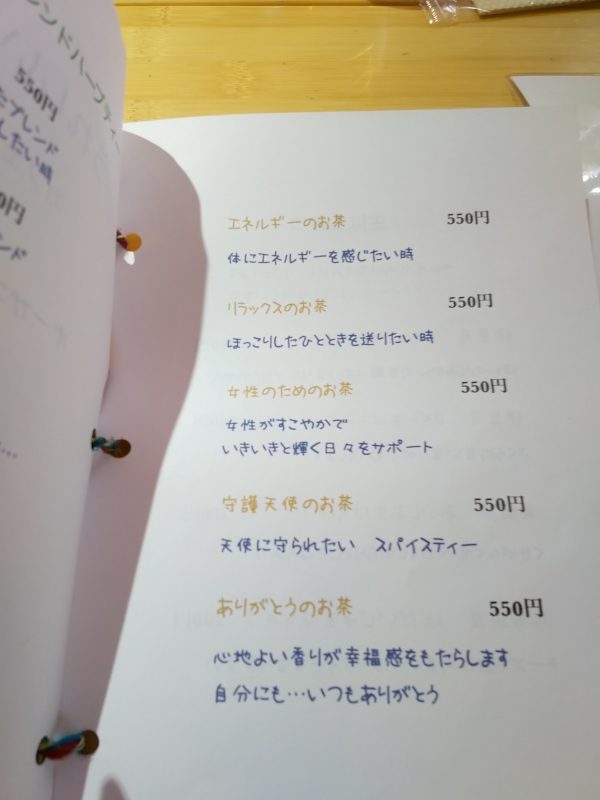 ンドハーブティ
550円
たブレンド
したい時
0円
ンド
エネルギーのお茶 550円
体にエネルギーを感じたい時
リラックスのお茶 550円
ほっこりしたひとときを送りたい時
女性のためのお茶 550円
女性がすこやかで
いきいきと輝く日々をサポート
守護天使のお茶 550円
天使に守られたい スパイスティー
ありがとうのお茶 550円
心地よい香りが幸福感をもたらします
自分にも…いつもありがとう